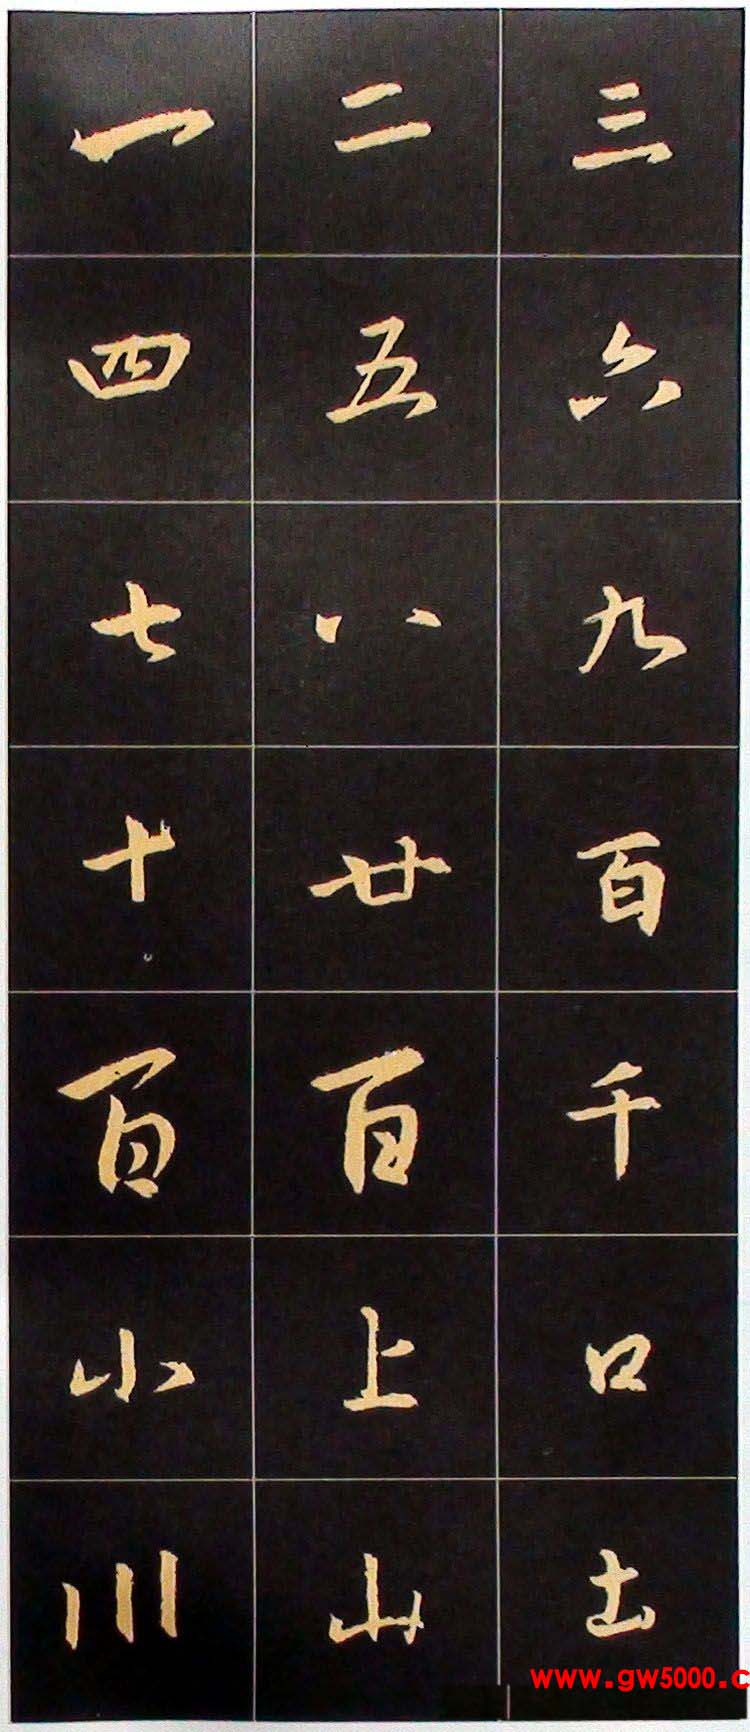 一 二 三
四 五 六
七 八 九
十 廿 百
百 百 千
小 上 口
川 山 土
www.gw5000.c